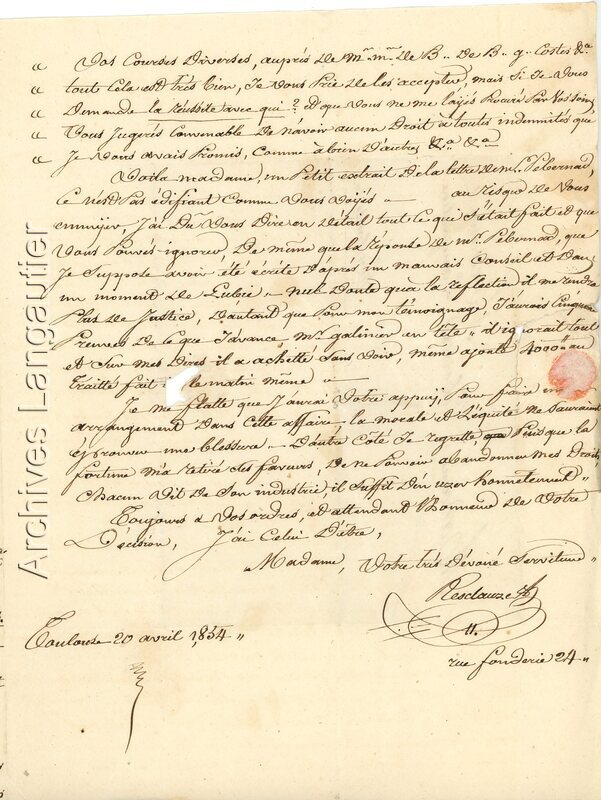 " Vos Courses Diverses, auprès de Mrs. mrs. de B.. de B.. g.. Costes &a
" tout Cela est très bien, Je vous Prie de les accepter, mais Si Je vous
" Demande la réussite avec qui ? et que vous ne me l'ayés Procurés Par Vos Soins
" Vous Jugerés Convenable de n'avoir aucun Droit a toutes indemnités que
" Je Vous avais Promis, Comme a bien D'autres &a &a
Voila madame, un Petit extrait de la lettre de mr. Pebernad,
Ce n'est Pas édifiant Comme Vous Voyés - au risque de Vous
ennuyer, J'ai Du Vous Dire en détail tout Ce qui S'était fait et que
Vous Pouvés ignorer, De même que la réponse de mr. Pebernad, que
Je Suppose avoir été écrite D'après un mauvais Conseil et Dans
un moment de Lubie - nul Doute qu'a la reflection il me rendra
Plus de Justice, Dautant que Pour mon témoignage, J'aurais Cinquante
Preuves de Ce que J'avance, mr. galinier en tête " il ignorait tout
et Sur mes Dires il a achetté Sans Voir, même ajouté 4000" au
traitté fait le matin même -
Je me flatte que J'aurai Votre appuij, Pour faire un
arrangement Dans Cette affaire - la morale et L'équité ne Sauraient
éprouver une blessure - Dautre Coté Je regrette Puisque la
fortune m'a retiré Ses faveurs, De ne Pouvoir abandonner mes Droits,
Chacun Vit de Son industrie, il Suffit D'en uzer honnetement "
Toujours a Vos ordres, et attendant l'honneur de Votre
Décision, J'ai Celui D'être,
Madame, Votre très Dévoué Serviteur "
Resclauze
Toulouse 20 avril 1834 "
rue fonderie 24 "
Archives Langautier